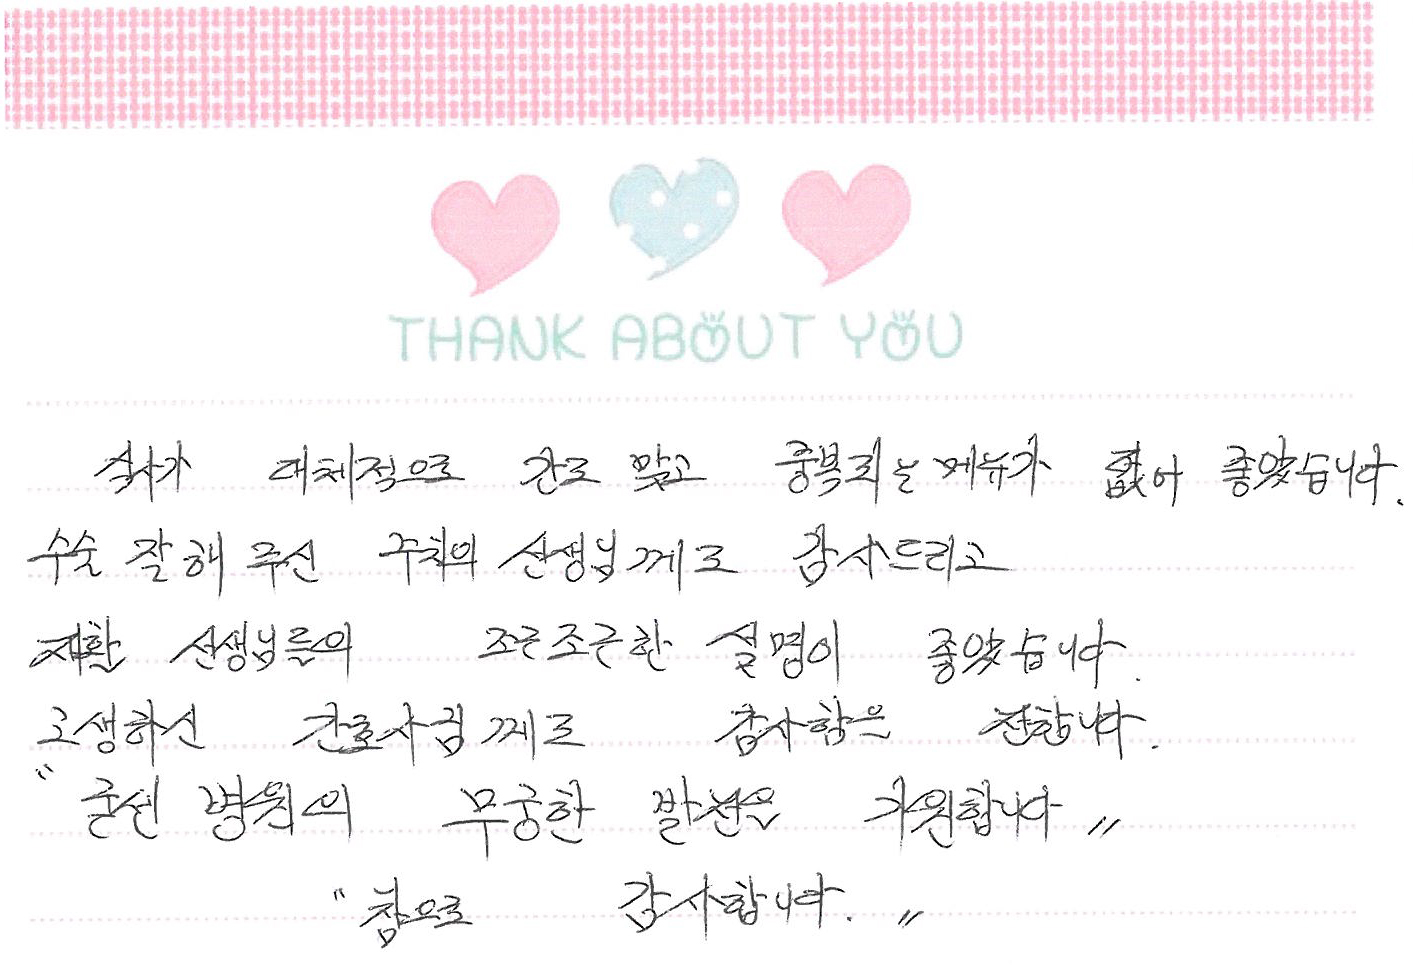 THANK ABOUT YOU
식사가 대체적으로 간도 맞고 중복되는 메뉴가 없어 좋았습니다.
수술 잘 해 주신 주치의 선생님께도 감사드리고
재활 선생님들의 조근조근한 설명이 좋았습니다.
고생하신 간호사님께도 감사함은 전합니다.
" 굳센 병원의 무궁한 발전을 기원합니다 "
" 참으로 감사합니다. "